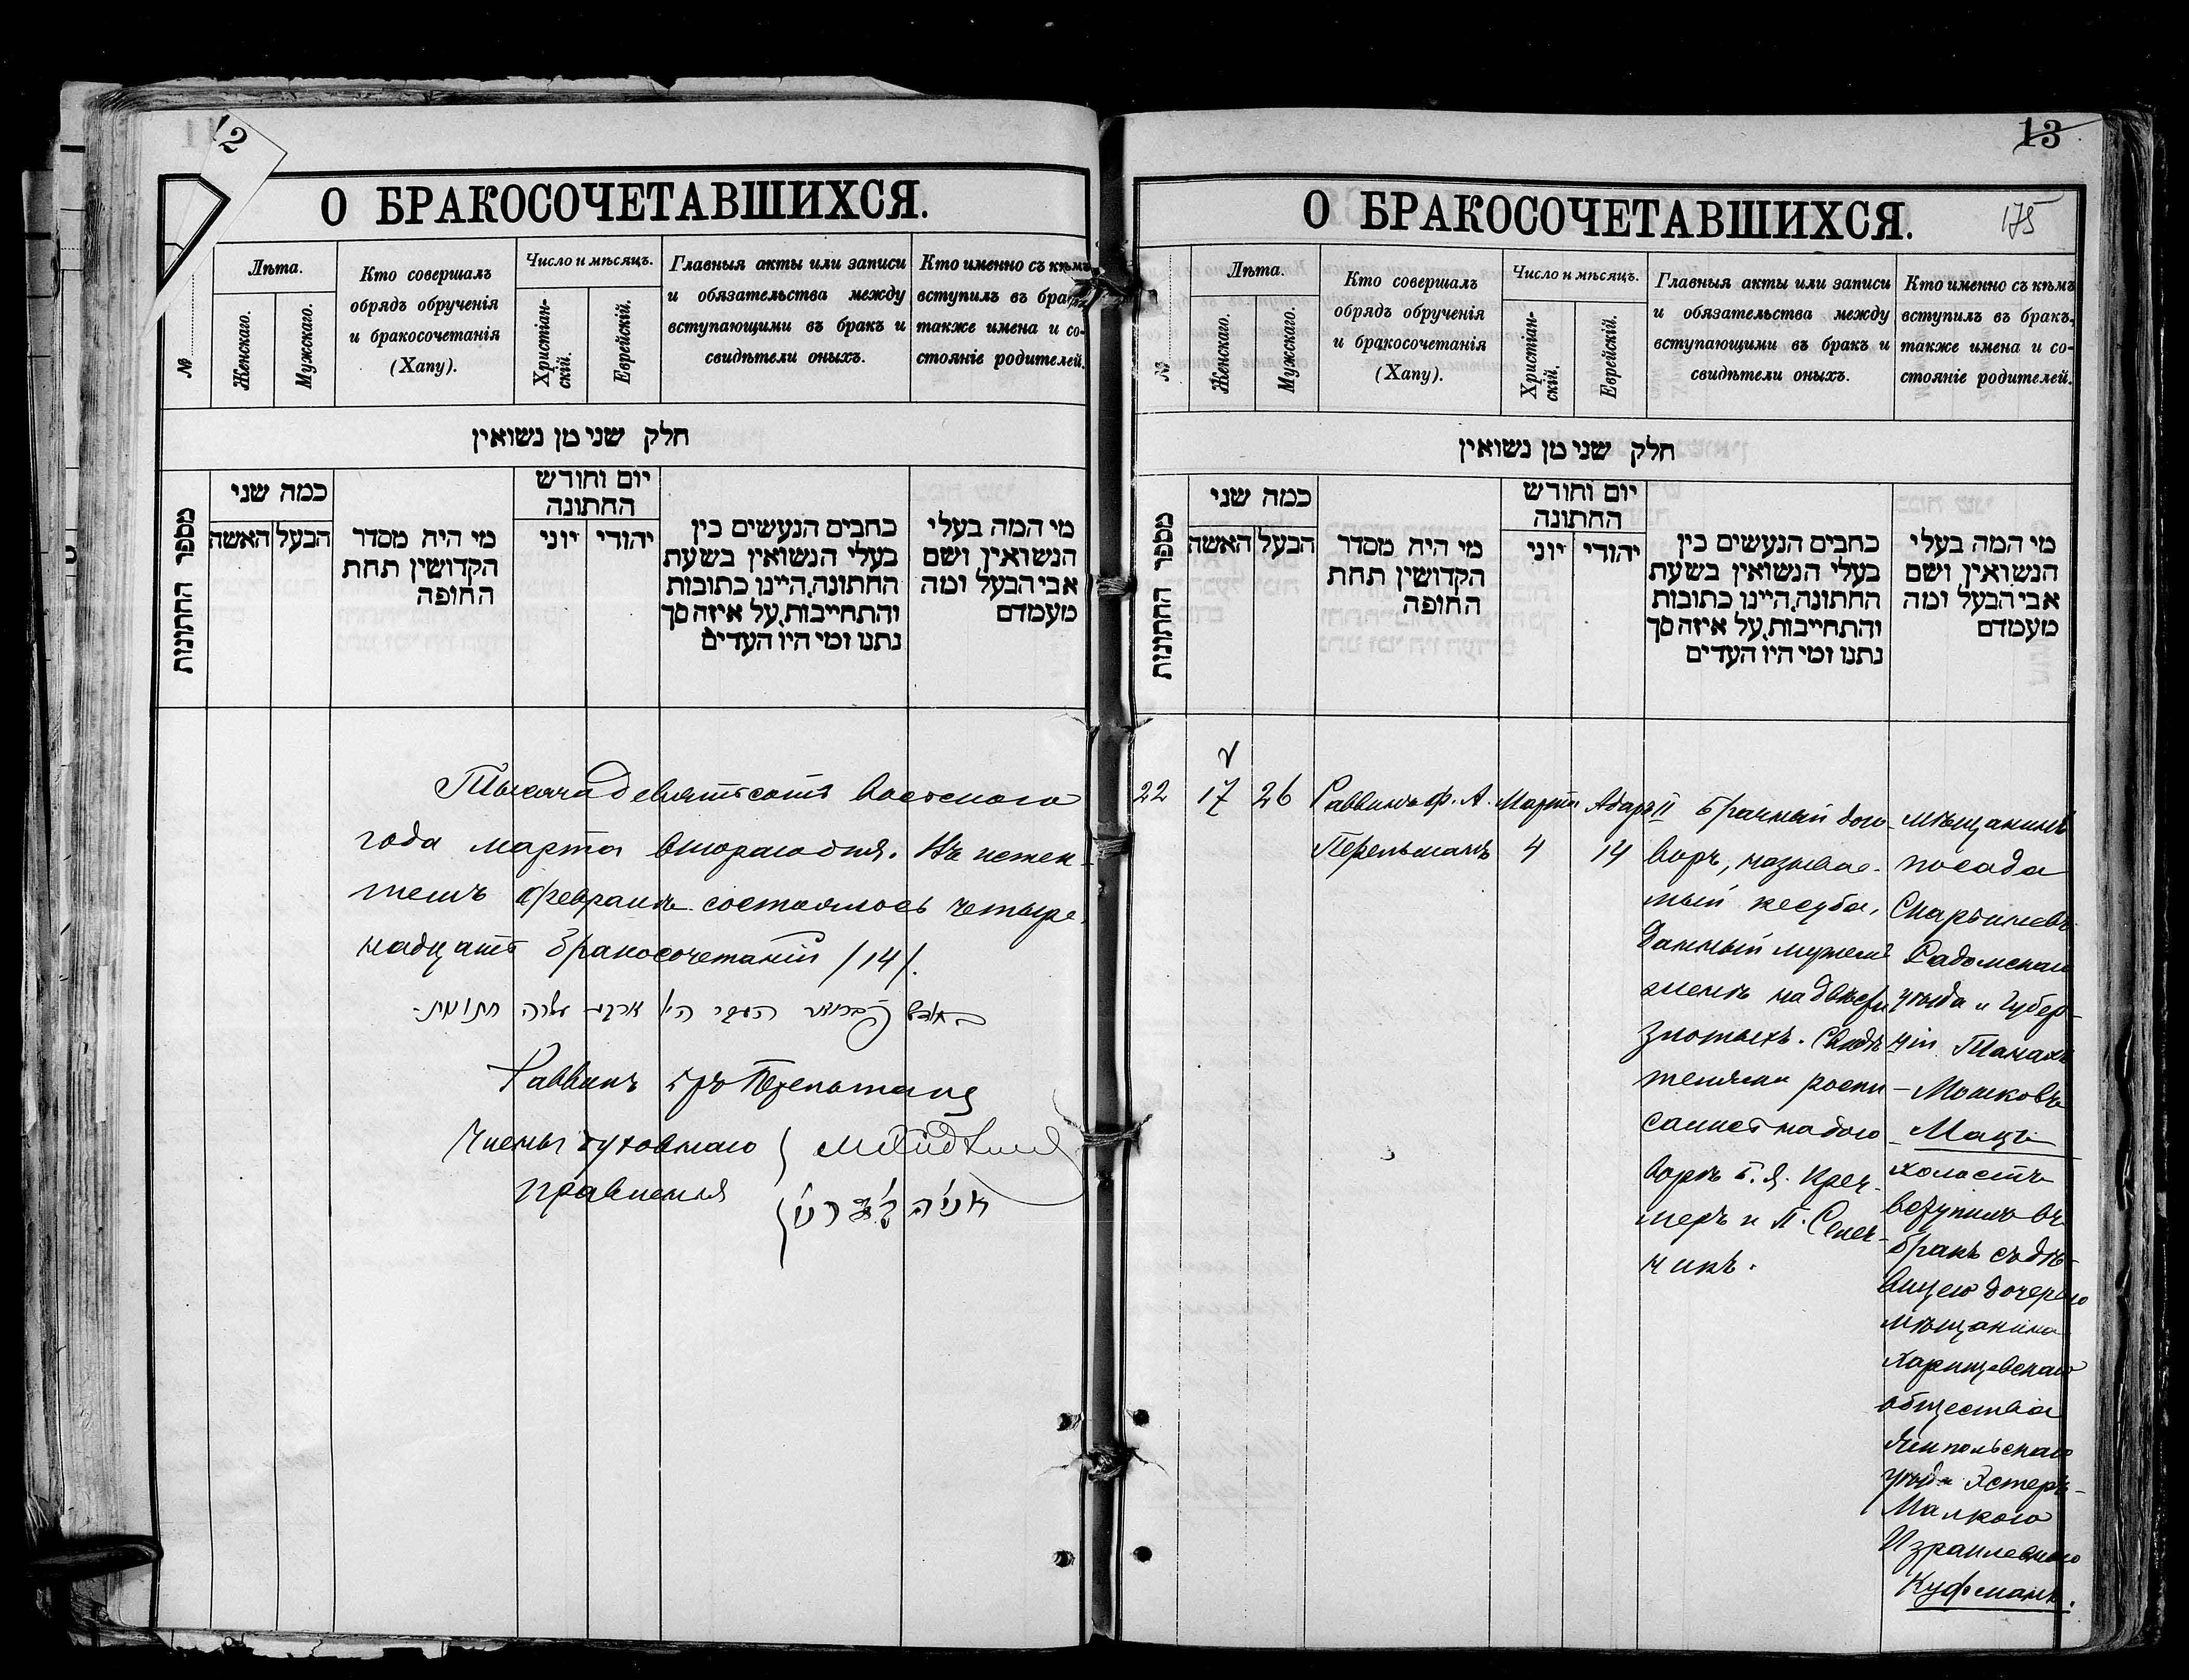 12
О БРАКОСОЧЕТАВШИХСЯ.
№
Лѣта.
Женскаго.
Мужскаго.
Кто совершалъ
обрядъ обрученія
и бракосочетанія
(Хапу).
Число и мѣсяцъ.
Христіан-
скій.
Еврейскій.
Главныя акты или записи
и обязательства между
вступающими въ бракъ и
свидѣтели оныхъ.
Кто именно съ кѣмъ
вступилъ въ бракъ,
также имена и со-
стояніе родителей.
חלק שני מן נשואין
מספר החתונות
כמה שני
הבעל האשה
מי היה מסדר
הקדושין תחת
החופה
יום וחודש
החתונה
יהודי יוני
כתבים הנעשים בין
בעלי הנשואין בשעת
החתונה, היינו כתובות
והתחייבות, על איזה סך
נתנו ומי היו העדים
מי המה בעלי
הנשואין, ושם
אבי הבעל ומה
מעמדם
Тысяча девятьсотъ восьмого
года марта второго дня. Въ истек-
шемъ февралѣ состоялось четыре-
надцать бракосочетаній /14/.
חתונות
Раввинъ Перельманъ
Члены духовнаго
правленія
13
175
О БРАКОСОЧЕТАВШИХСЯ.
№
Лѣта.
Женскаго.
Мужскаго.
Кто совершалъ
обрядъ обрученія
и бракосочетанія
(Хапу).
Число и мѣсяцъ.
Христіан-
скій.
Еврейскій.
Главныя акты или записи
и обязательства между
вступающими въ бракъ и
свидѣтели оныхъ.
Кто именно съ кѣмъ
вступилъ въ бракъ,
также имена и со-
стояніе родителей.
חלק שני מן נשואין
מספר החתונות
כמה שני
הבעל האשה
מי היה מסדר
הקדושין תחת
החופה
יום וחודש
החתונה
יהודי יוני
כתבים הנעשים בין
בעלי הנשואין בשעת
החתונה, היינו כתובות
והתחייבות, על איזה סך
נתנו ומי היו העדים
מי המה בעלי
הנשואין, ושם
אבי הבעל ומה
מעמדם
22
17
26
Раввинъ Ф. А.
Перельманъ
Марта
4
Адаръ II
14
Брачный дого-
воръ, называе-
мый кесуба,
данный мужемъ
женѣ на двѣсти
злотыхъ. Свидѣ-
телями роспи-
сались на дого-
ворѣ Б. Я. Креч-
меръ и П.
чикъ.
мѣщанинъ
посада
Радомскаго
уѣзда и Губер-
ніи
Мошковъ
Мацъ
холостъ
вступилъ въ
бракъ съ дѣ-
вицею дочерью
мѣщанина
общества
Ямпольскаго
уѣзда Эстеръ-
Малкою
Израилевною
Куфманъ.